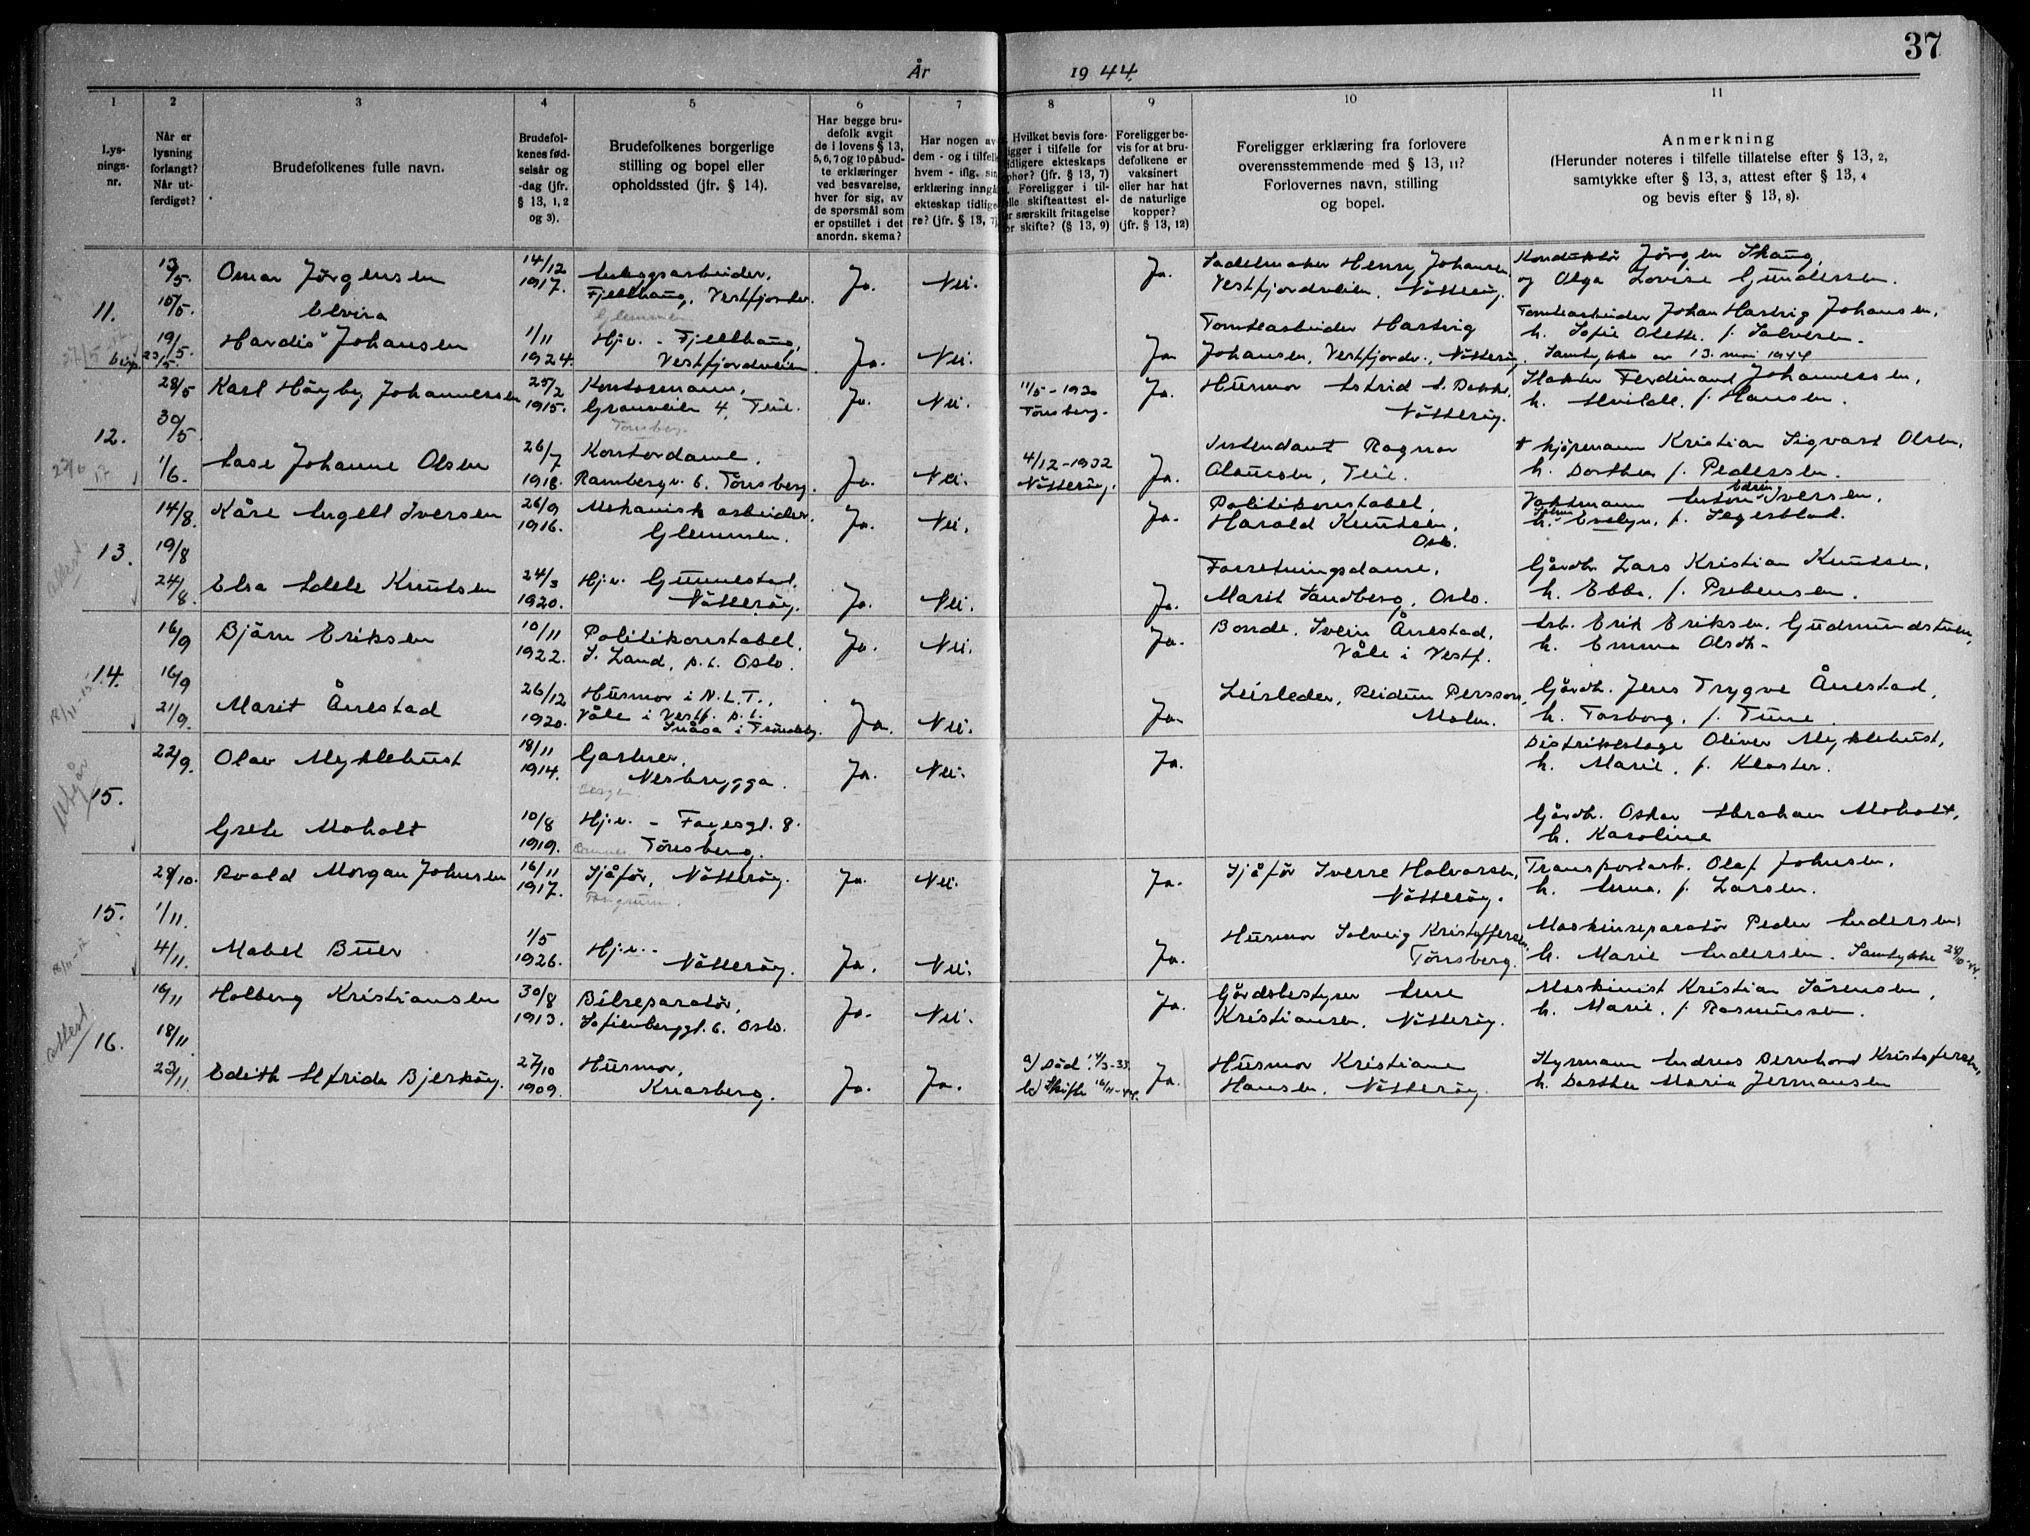 37
År 1944.
1 2 3 4 5 6 7 8 9 10 11
Lys-
nings-
nr.
Når er
lysning
forlangt?
Når ut-
ferdiget?
Brudefolkenes fulle navn.
Brudefol-
kenes fød-
selsår og
-dag (jfr.
§ 13, 1, 2
og 3).
Brudefolkenes borgerlige
stilling og bopel eller
opholdssted (jfr. § 14).
Har begge bru-
defolk avgit
de i lovens § 13,
5, 6, 7 og 10 påbud-
te erklæringer
ved besvarelse,
hver for sig, av
de spørsmål som
er opstillet i det
anordn. skema?
Har nogen av
dem - og i tilfelle
hvem - iflg. sin
erklæring inngå
ekteskap tidlige
re? (jfr. § 13, 7)
Hvilket bevis fore-
ligger i tilfelle for
tidligere ekteskaps
ophør? (jfr. § 13, 7)
Foreligger i til-
elle skifteattest el-
r særskilt fritagelse
or skifte? (§ 13, 9)
Foreligger be-
vis for at bru-
defolkene er
vaksinert
eller har hat
de naturlige
kopper?
(jfr. § 13, 12)
Foreligger erklæring fra forlovere
overensstemmende med § 13, 11?
Forlovernes navn, stilling
og bopel.
Anmerkning
(Herunder noteres i tilfelle tillatelse efter § 13, 2,
samtykke efter § 13, 3, attest efter § 13, 4
og bevis efter § 13, 8).
11.
13/5.
15/5.
19/5.
Omar Jörgensen
14/12
1917.
Anleggsarbeider,
Fjellhaug, Vestfjordv.
Glemmen
Ja. Nei. Ja.
Sadelmaker Henry Johansen,
Vestfjordveien, Nötteröy.
Konduktör Jörgen Skaug,
og Olga Lovise Gundersen.
Elvira
Hardis Johansen
1/11
1924.
Hj.v. - Fjellhaug,
Vestfjordveien
Ja. Nei. Ja
Tomtearbeider Hartvig
Johansen, Vestfjordv., Nötteröy.
Tomtearbeider Johan Hartvig Johansen,
h. Sofie Olette, f. Salvesen.
Samtykke av 13. mai 1944
12.
28/5
30/5
1/6.
Karl Höyby Johannessen
25/2
1915.
Kontormann,
Granveien 4, Teie.
Tönsberg
Ja. Nei.
11/5 - 1920
Tönsberg.
Ja.
Husmor Astrid S. Dokke,
Nötteröy.
Slakter Ferdinand Johannessen,
h. Alvilde, f. Hansen.
Aase Johanne Olsen
26/7
1918.
Kontordame,
Rambergv. 6. Tönsberg.
Ja. Nei.
4/12 - 1932
Nötteröy.
Ja.
Intendant Ragnar
Olaussen, Teie.
† kjöpmann Kristian Sigvart Olsen,
h. Dorthea f. Pedersen.
13.
14/8.
19/8
24/8.
Kåre Engell Iversen
26/9
1916.
Mekanisk arbeider.
Glemmen.
Ja. Nei. Ja.
Politikonstabel,
Harald Knudsen,
Oslo.
Vaktmann Anton Edvin Iversen,
h. Evelyn, f. Segerblad.
Elsa Adele Knutsen
24/3
1920.
Hj.v. Gunnestad,
Nötteröy.
Ja. Nei. Ja.
Forretningsdame,
Marit Sandberg, Oslo.
Gårdbr. Lars Kristian Knutsen,
h. Ebba, f. Prebensen.
14.
16/9
16/9
21/9.
Björn Eriksen
10/11
1922.
Politikonstabel.
S. Land, p.t. Oslo.
Ja. Nei. Ja.
Bonde, Svein Ånestad,
Våle i Vestf.
Arb. Erik Eriksen, Gudmundstuen,
h. Emma Olsdt.
Marit Ånestad
26/12
1920.
Husmor i N.L.T.,
Våle i Vestf. p.t.
Snåsa i Tröndelag.
Ja. Nei. Ja.
Leirleder, Reidun Persson,
Malm.
Gårdbr. Jens Trygve Ånestad,
h. Torborg, f. Tune.
Utgår
15.
22/9.
Olav Myklebust
18/11
1914.
Gartner,
Nesbrygga.
Bergen
Ja. Nei. Ja.
Distriktslege Oliver Myklebust,
h. Marie, f. Kloster.
Grete Moholt
10/8
1919.
Hj.v. - Faresgt. 8.
Tönsberg.
Gårdbr. Oskar Abraham Moholt,
h. Karoline
15.
28/10.
1/11.
4/11.
Roald Morgan Johnsen
16/11
1917.
Sjåför, Nötteröy.
Ja. Nei. Ja.
Sjåför Sverre Halvorsen,
Nötteröy.
Transportarb. Olaf Johnsen,
h. Anna, f. Larsen.
Mabel Buer
1/5
1926.
Hj.v. -
Nötteröy.
Ja. Nei. Ja.
Husmor Solveig Kristoffersen,
Tönsberg.
Maskinreparatör Peder Andersen,
h. Marie Andersen. Samtykke 28/10-44.
attest.
16.
16/11
18/11.
23/11.
Holberg Kristiansen
30/8
1913.
Bilreparatör,
Sofienberggt. 6, Oslo.
Ja. Nei. Ja.
Gårdsbestyrer Arne
Kristiansen, Nötteröy.
Maskinist Kristian Sörensen,
h. Marie, f. Rasmussen.
Edith Alfride Bjerköy.
27/10
1909.
Husmor,
Knarberg.
Ja. Ja.
a) Död: 14/3-33.
b) Skifte 16/11-44.
Ja.
Husmor Kristiane
Hansen, Nötteröy.
Styrmann Andreas Bernhard Kristoffersen,
h. Dorthea Maria Jermansen